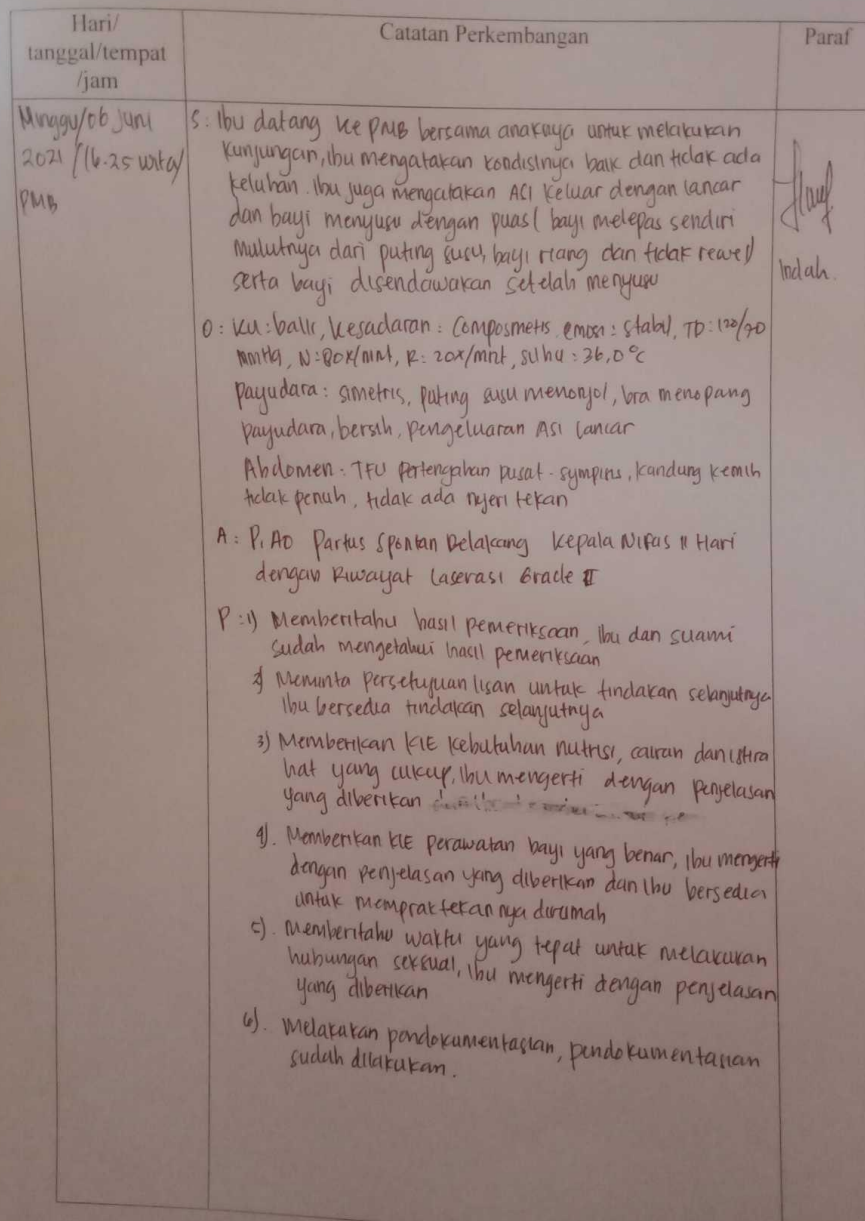 Hari/
tanggal/tempat
/jam
Catatan Perkembangan
Paraf
Minggu/06 Juni
2021 / 16.25 wita/
PMB
S: Ibu datang ke PMB bersama anaknya untuk melakukan
kunjungan, ibu mengatakan kondisinya baik dan tidak ada
keluhan. Ibu juga mengatakan ASI keluar dengan lancar
dan bayi menyusu dengan puas ( bayi melepas sendiri
mulutnya dari puting susu, bayi riang dan tidak rewel)
serta bayi disendawakan setelah menyusu
Indah.
O: KU: baik, kesadaran: Composmetis emosi: stabil, TD: 120/70
mmHg, N: 80x/mnt, R: 20x/mnt, suhu: 36,0°C
payudara: simetris, puting susu menonjol, bra menopang
payudara, bersih, pengeluaran ASI lancar
Abdomen: TFU pertengahan pusat - sympins, kandung kemih
tidak penuh, tidak ada nyeri tekan
A: P1A0 Partus Spontan Belakang Kepala Nifas 11 Hari
dengan Riwayat Laserasi Grade II
P: 1) Memberitahu hasil pemeriksaan, ibu dan suami
sudah mengetahui hasil pemeriksaan
2) Meminta persetujuan lisan untuk tindakan selanjutnya
ibu bersedia tindakan selanjutnya
3) Memberikan KIE kebutuhan nutrisi, cairan dan istira
hat yang cukup, ibu mengerti dengan penjelasan
yang diberikan
4). Memberikan KIE perawatan bayi yang benar, ibu mengerti
dengan penjelasan yang diberikan dan ibu bersedia
untuk mempraktekannya dirumah
5). Memberitahu waktu yang tepat untuk melakukan
hubungan seksual, ibu mengerti dengan penjelasan
yang diberikan
6). Melakukan pendokumentasian, pendokumentasian
sudah dilakukan.